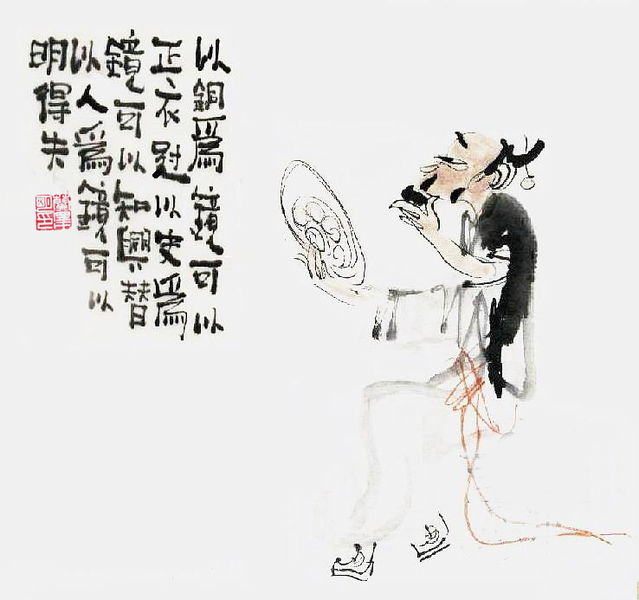 以銅爲鏡可以
正衣冠以史爲
鏡可以知興替
以人爲鏡可以
明得失